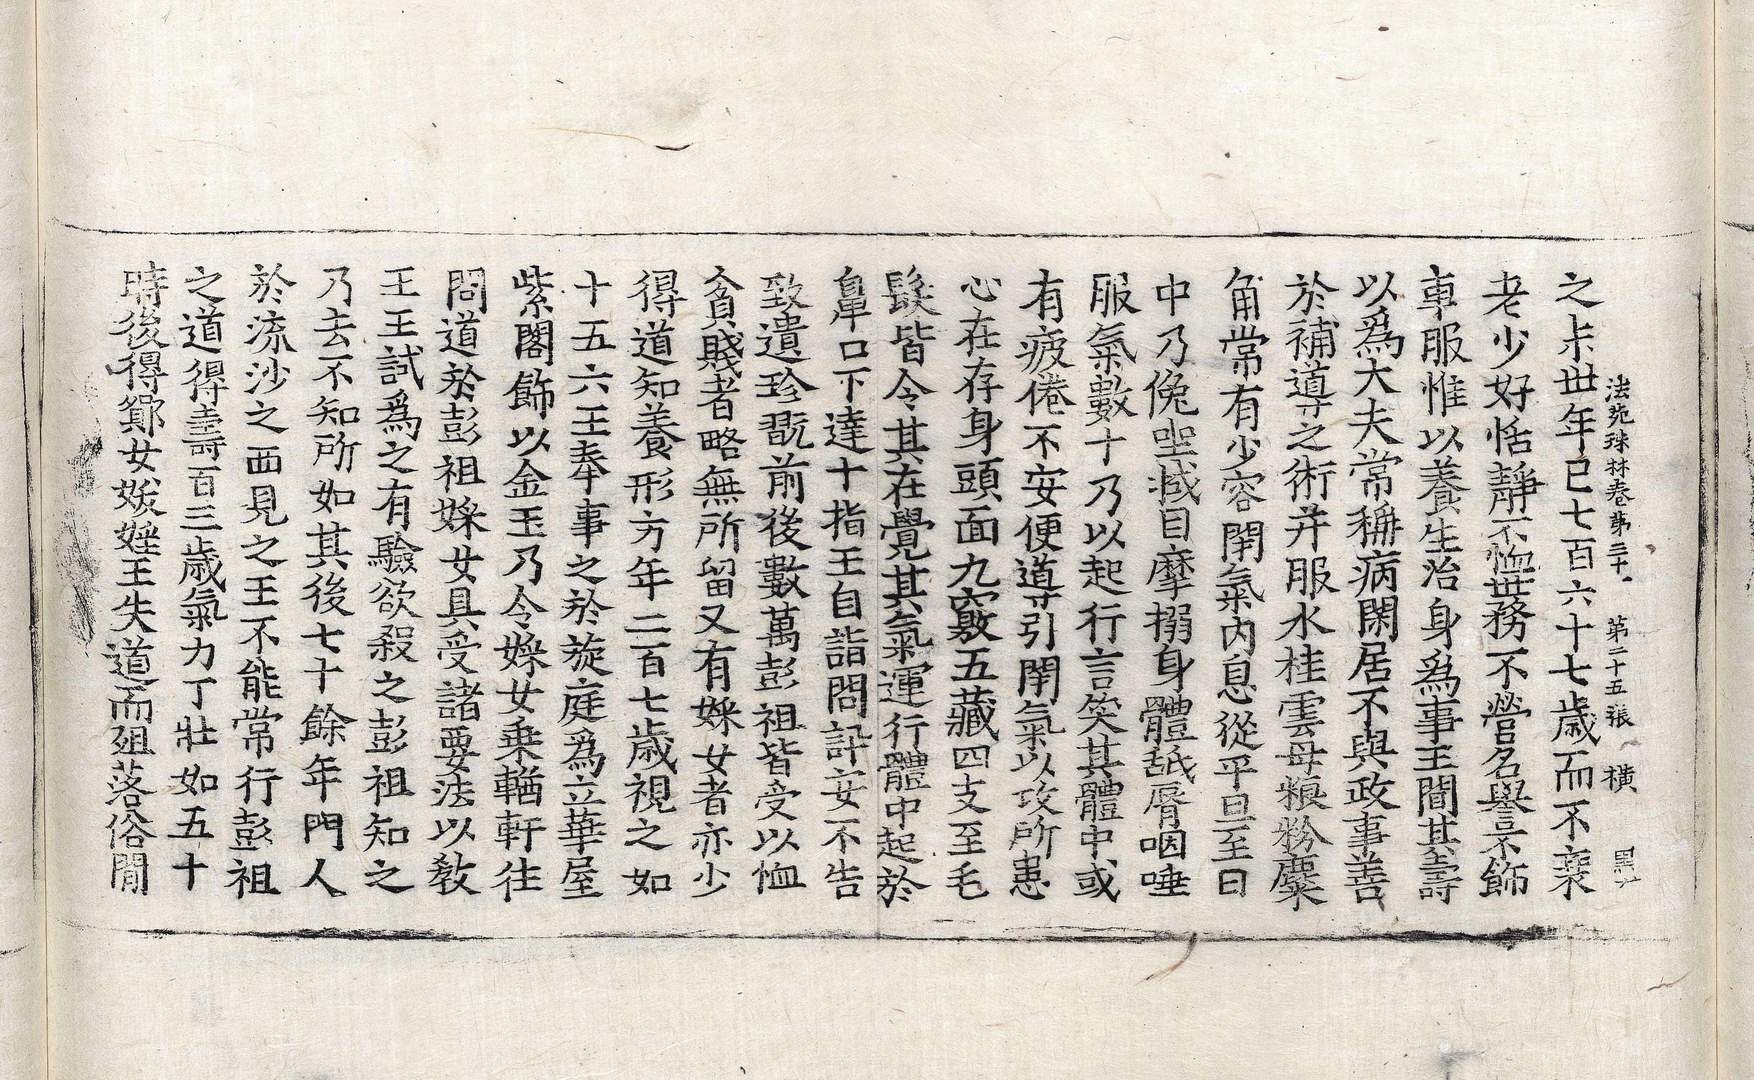 法苑珠林卷第三十一 第二十五張 橫
之末世年已七百六十七歲而不衰
老少好恬靜不恤世務不營名譽不飾
車服惟以養生治身爲事王聞其壽
以爲大夫常稱病閑居不與政事善
於補導之術并服水桂雲母粮粉麋
角常有少容閇氣內息從平旦至日
中乃俛坐拭目摩搦身體舐脣咽唾
服氣數十乃以起行言笑其體中或
有疲倦不安便導引閇氣以攻所患
心在存身頭面九竅五藏四支至毛
髮皆令其在覺其氣運行體中起於
鼻口下達十指王自詣問訊安不告
致遺珍翫前後數萬彭祖皆受以恤
貧賤者略無所留又有婇女者亦少
得道知養形方年二百七歲視之如
十五六王奉事之於旋庭爲立華屋
紫閣飾以金玉乃令婇女乗輶軒往
問道於彭祖婇女具受諸要法以敎
王王試爲之有驗欲殺之彭祖知之
乃去不知所如其後七十餘年門人
於流沙之西見之王不能常行彭祖
之道得壽百三歲氣力丁壯如五十
時後得鄭女妖婬王失道而殂落俗聞